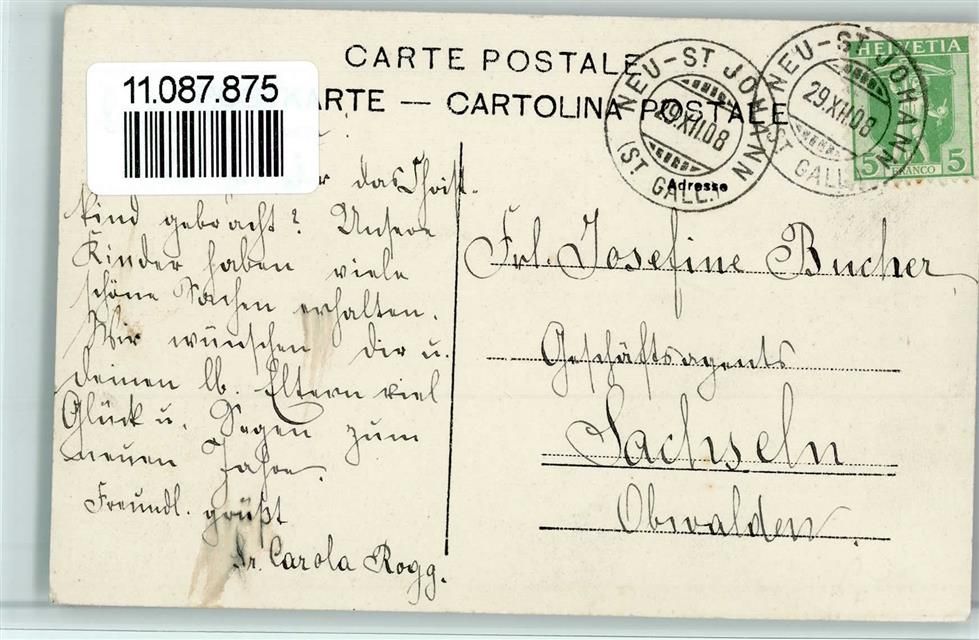 CARTE POSTALE
11.087.875
KARTE — CARTOLINA POSTALE
NEU-ST JOHANN
29.XII.08
(ST GALL.)
NEU-ST JOHANN
29.XII.08
(ST GALL.)
HELVETIA
5 FRANCO 5
Adresse
das Christ-
kind gebracht? Unsere
Kinder haben viele
schöne Sachen erhalten.
Wir wünschen Dir u.
deinen lb. Eltern viel
Glück u. Segen zum
neuen Jahre.
Freundl. grüßt
Sr. Carola Rogg.
Frl. Josefine Bucher
Geschäftsagents
Sachseln
Obwalden.